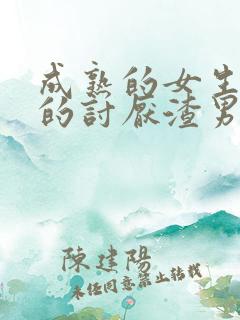 成熟的女生
的討厭渣男
陳建陽
未經同意禁止轉載